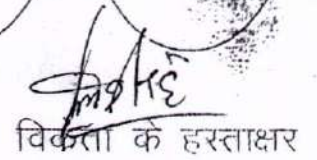 विक्रेता के हस्ताक्षर